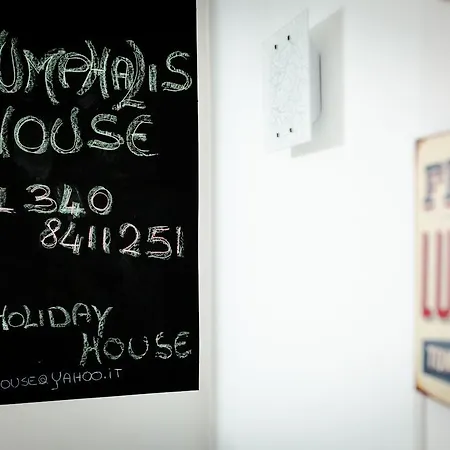 UMPHALIS
HOUSE
340
8411251
HOLIDAY
HOUSE
OUSE@YAHOO.IT